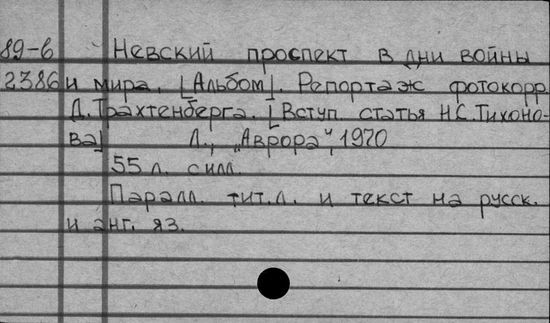 89-6 Невский проспект в дни войны
2386 и мира. [Альбом]. Репортаж фотокорр.
Д. Трахтенберга. [Вступ. статья Н.С. Тихоно-
ва] Л., „Аврора", 1970
55 л. с илл.
Паралл. тит. л. и текст на русск.
и анг. яз.